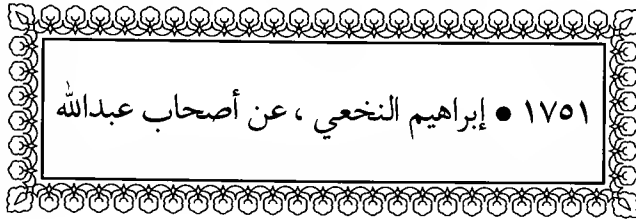 ١٧٥١ ● إبراهيم النخعي ، عن أصحاب عبدالله